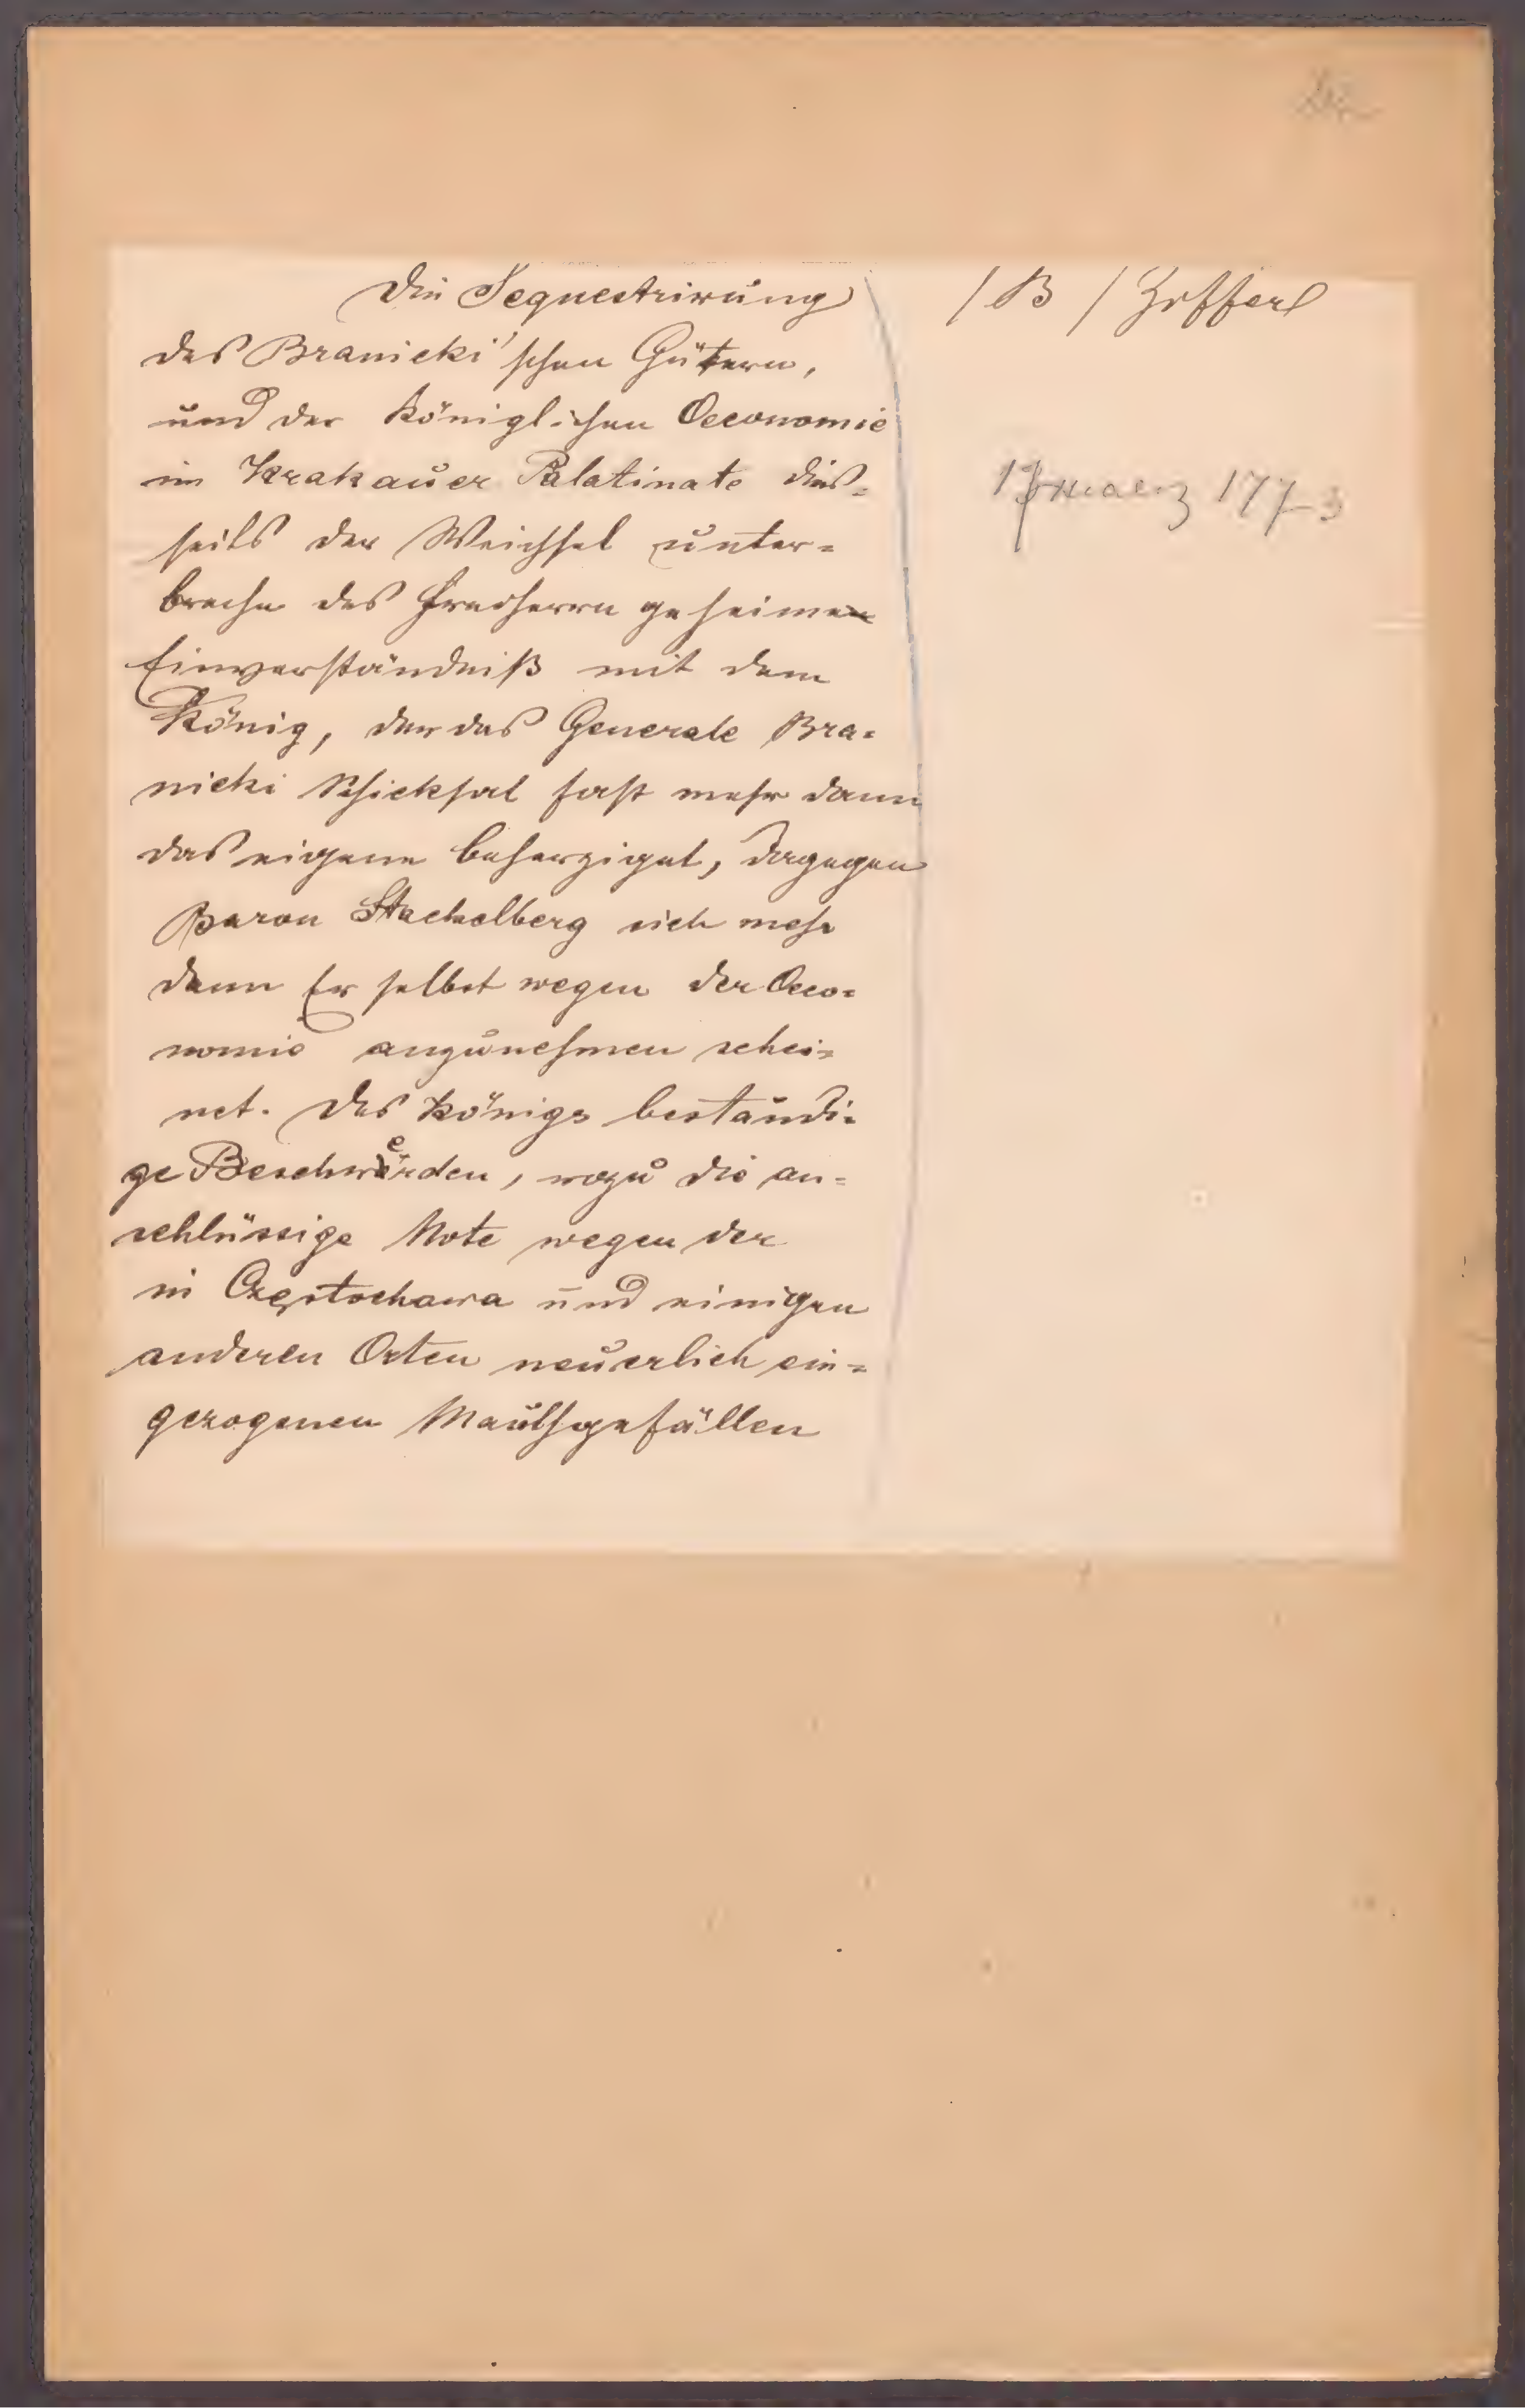 Die Sequestrirung
des Branicki'schen Gütern,
und der Königlichen Oeconomie
im Krakauer Palatinate dies=
seits der Weichsel unter=
breche des Freiherrn geheime
Einverständniß mit dem
König, der das Generale Bra=
nicki Schicksal fast mehr dann
das eigene beherziget, dagegen
Baron Stackelberg sich mehr
dann Er selbst wegen der Oeco=
nomie anzunehmen schei=
net. Des Königs beständi=
ge Beschwerden, wozu die an=
schlüssige Note wegen der
in Częstochawa und einigen
anderen Orten neuerlich ein=
gezogenen Mauthgefällen
/ B / Zifferl
1773